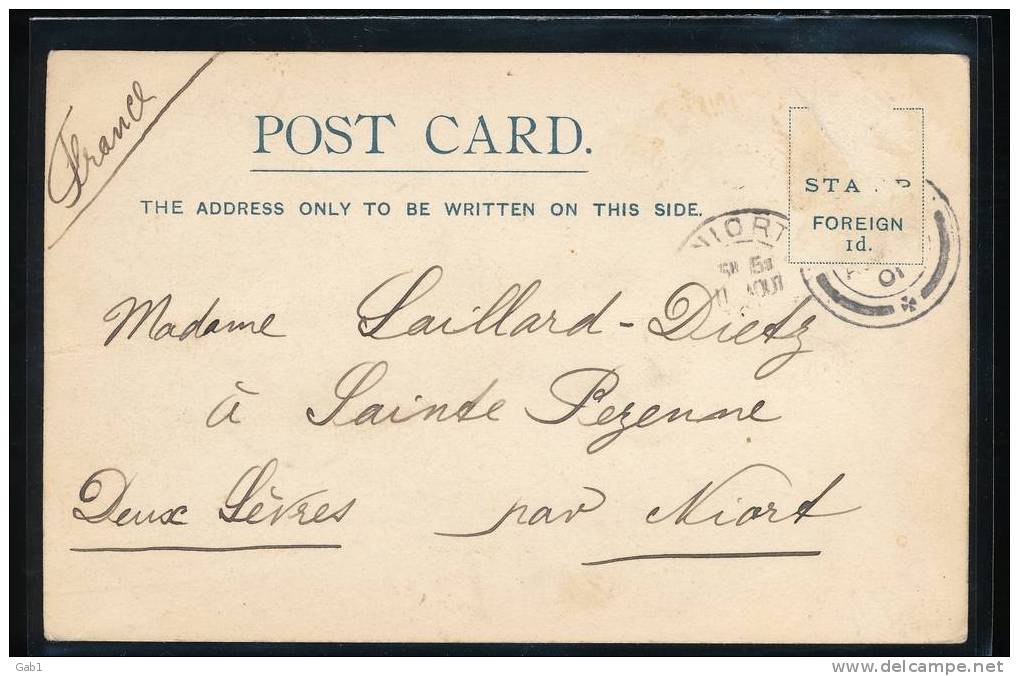 France
POST CARD.
THE ADDRESS ONLY TO BE WRITTEN ON THIS SIDE.
STA P
FOREIGN
1d.
NIORT
15
11 AOUT
01
Madame Saillard-Dietz
à Sainte Pezenne
Deux Sèvres par Niort
Gab1
delcampe.net